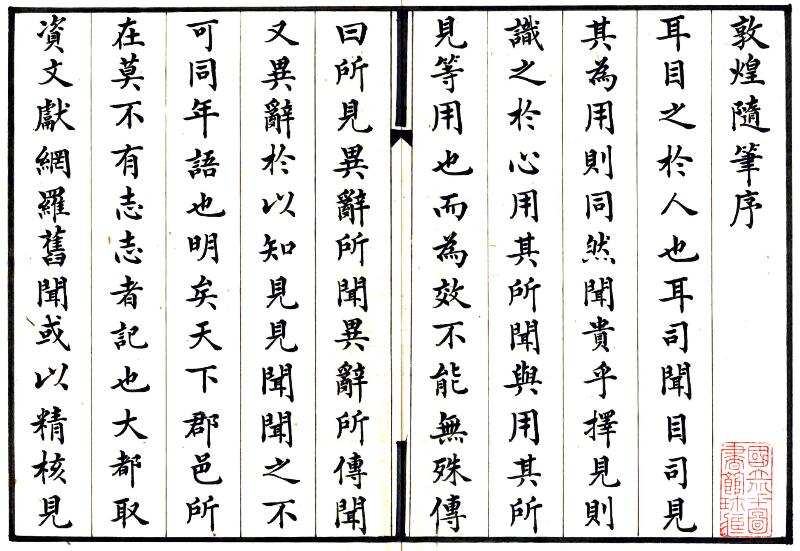 敦煌隨筆序
耳目之於人也耳司聞目司見
其為用則同然聞貴乎擇見則
識之於心用其所聞與用其所
見等用也而為效不能無殊傳
曰所見異辭所聞異辭所傳聞
又異辭於以知見見聞聞之不
可同年語也明矣天下郡邑所
在莫不有志志者記也大都取
資文獻網羅舊聞或以精核見